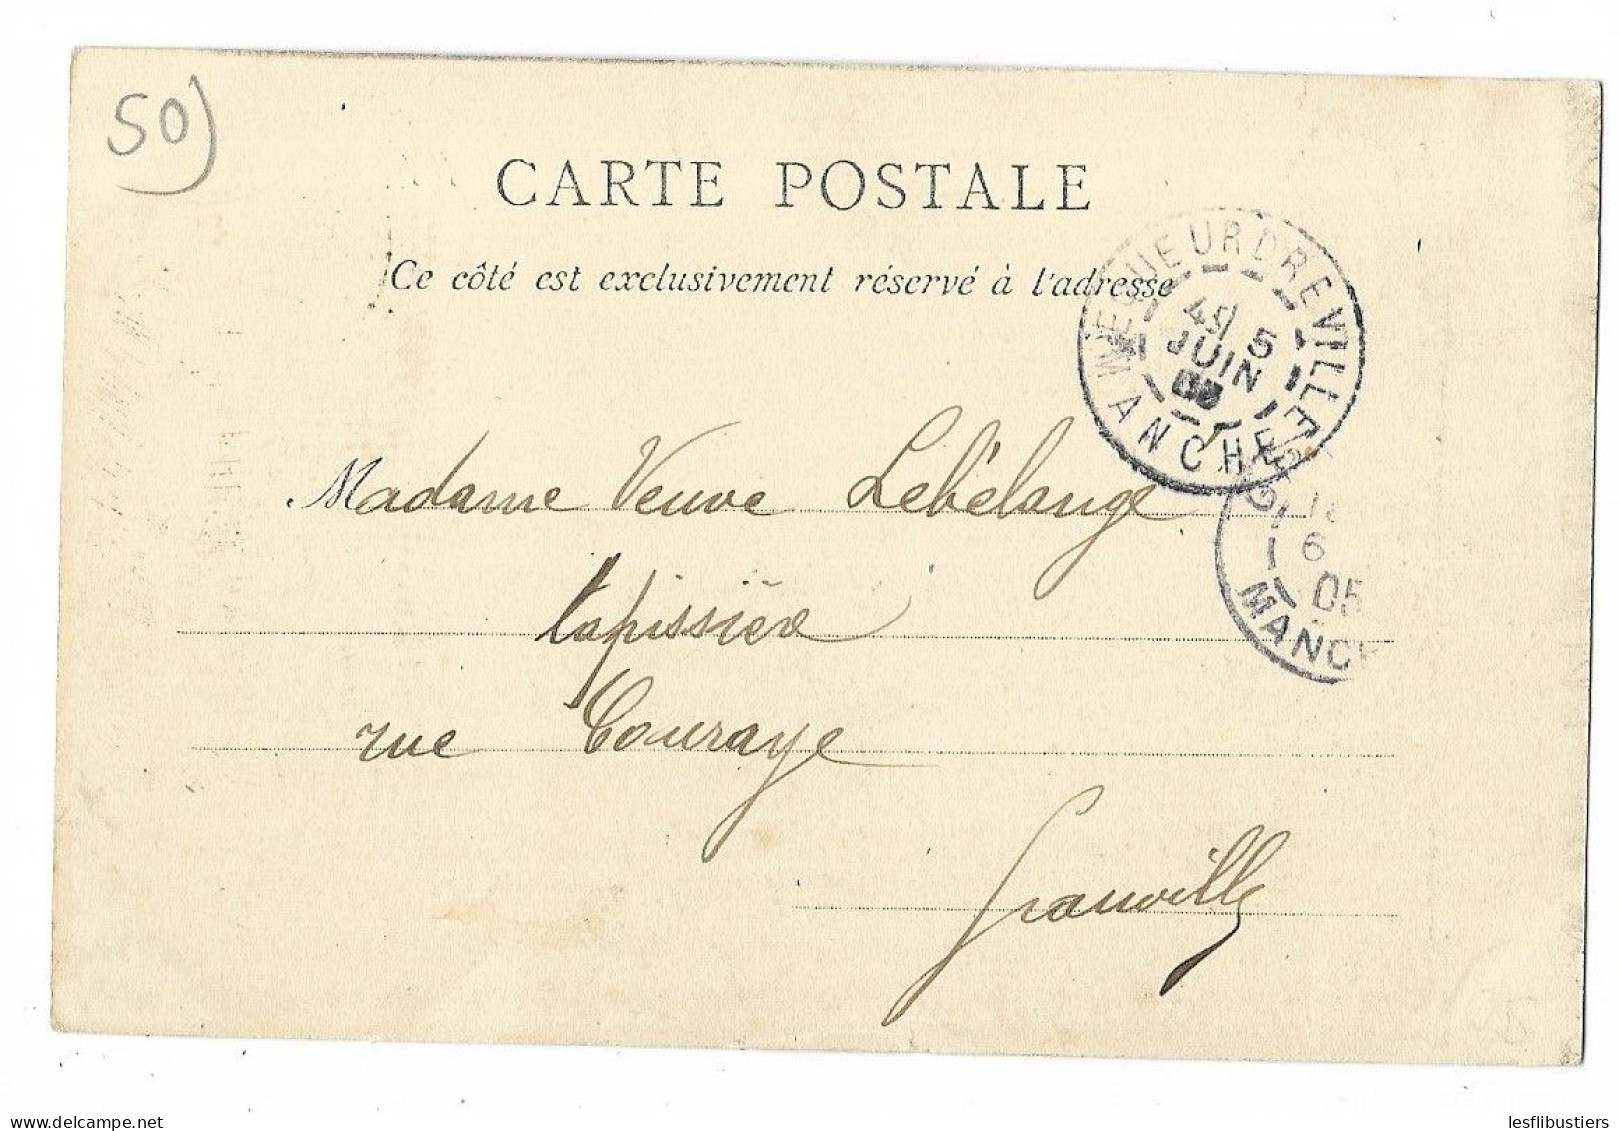 50)
CARTE POSTALE
Ce côté est exclusivement réservé à l'adresse
EQUEURDREVILLE
5
JUIN
MANCHE
Madame Veuve Lebélange
tapissière
rue Couraye
Granville
6
05
MANCH
lesflibustiers